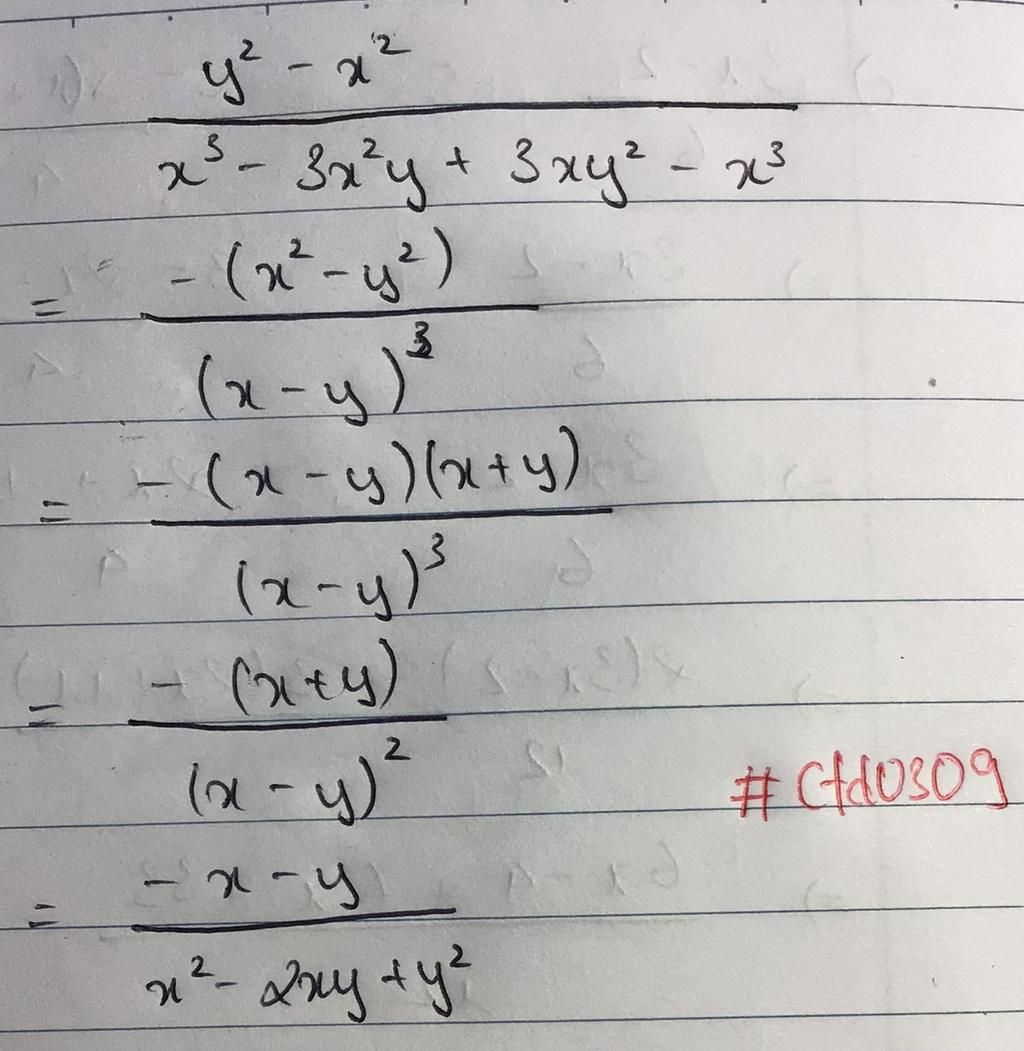 y² - x²
x³ - 3x²y + 3xy² - x³
= -(x² - y²)
(x - y)³
= -(x - y)(x + y)
(x - y)³
= -(x + y)
(x - y)²
#Ctd0309
= -x - y
x² - 2xy + y²